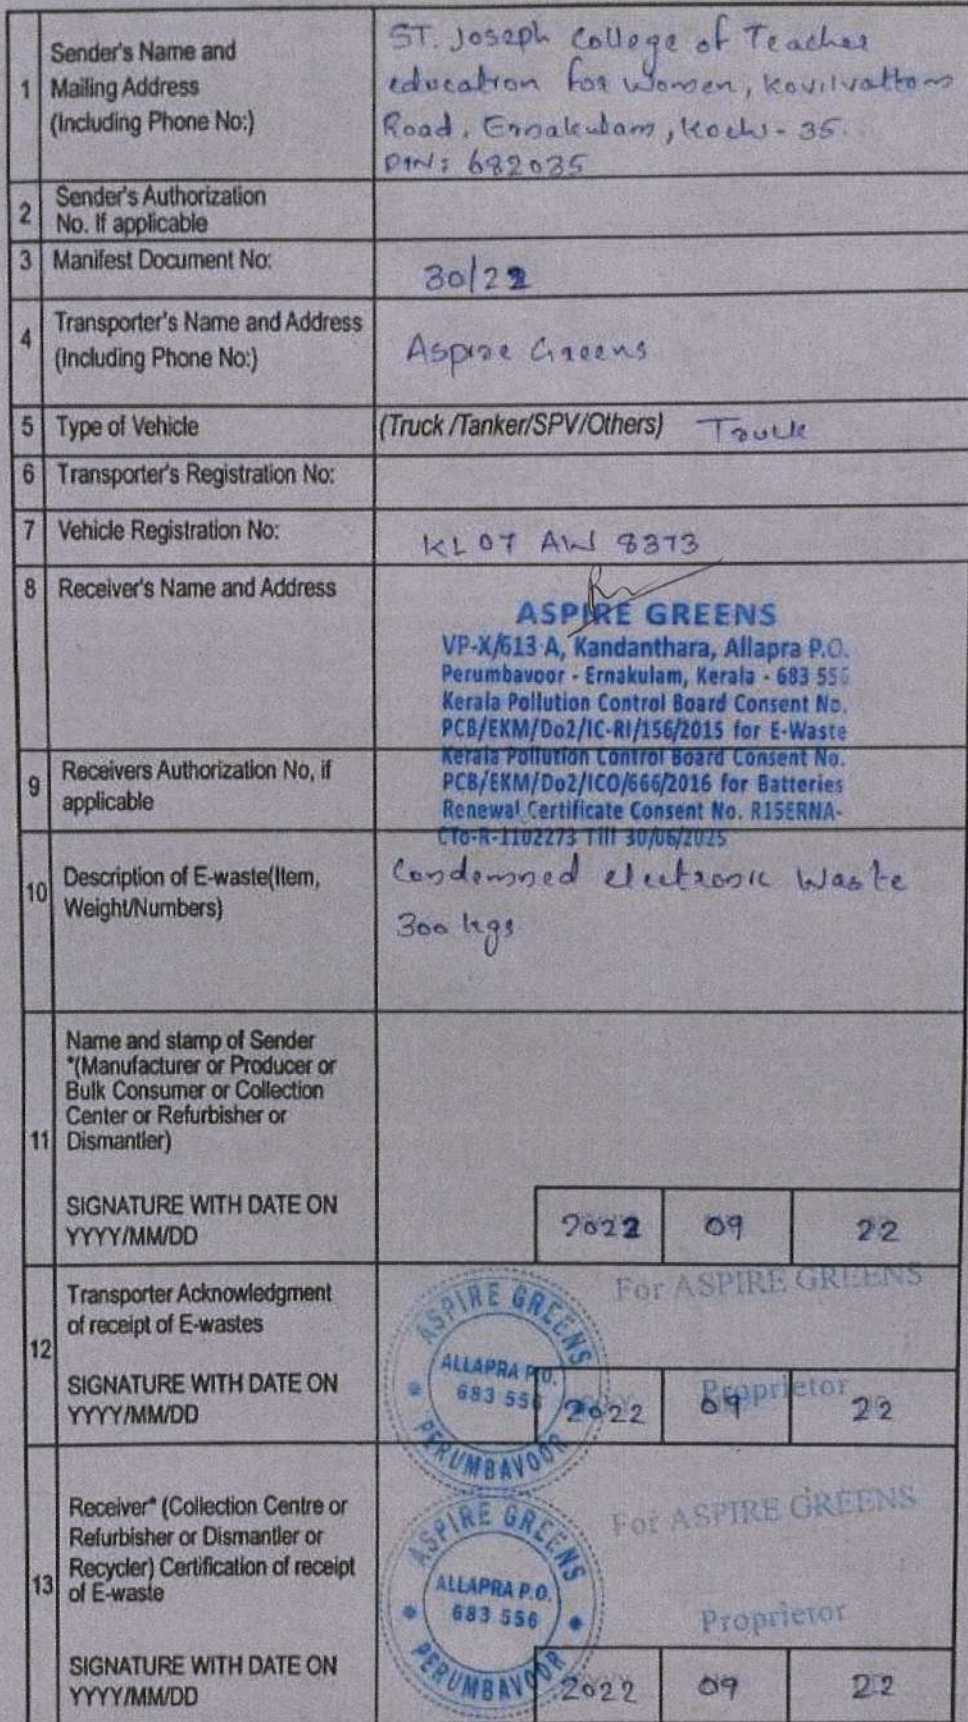 1 Sender's Name and
Mailing Address
(Including Phone No:)
ST. Joseph College of Teacher
education for Women, Kovilvattom
Road, Ernakulam, Kochi - 35.
PIN: 682035
2 Sender's Authorization
No. If applicable
3 Manifest Document No:
30/22
4 Transporter's Name and Address
(Including Phone No:)
Aspire Greens
5 Type of Vehicle
(Truck /Tanker/SPV/Others) Truck
6 Transporter's Registration No:
7 Vehicle Registration No:
KL 07 AW 8373
8 Receiver's Name and Address
ASPIRE GREENS
VP-X/613 A, Kandanthara, Allapra P.O.
Perumbavoor - Ernakulam, Kerala - 683 556
Kerala Pollution Control Board Consent No.
PCB/EKM/Do2/IC-RI/156/2015 for E-Waste
Kerala Pollution Control Board Consent No.
PCB/EKM/Do2/ICO/666/2016 for Batteries
Renewal Certificate Consent No. R15ERNA-
CTo-R-1102273 Till 30/06/2025
9 Receivers Authorization No, if
applicable
10 Description of E-waste(Item,
Weight/Numbers)
Condemned electronic Waste
300 kgs
11 Name and stamp of Sender
*(Manufacturer or Producer or
Bulk Consumer or Collection
Center or Refurbisher or
Dismantler)
SIGNATURE WITH DATE ON
YYYY/MM/DD
2022 09 22
12 Transporter Acknowledgment
of receipt of E-wastes
SIGNATURE WITH DATE ON
YYYY/MM/DD
ASPIRE GREENS
ALLAPRA P.O.
683 556
PERUMBAVOOR
For ASPIRE GREENS
Proprietor
2022 09 22
13 Receiver* (Collection Centre or
Refurbisher or Dismantler or
Recycler) Certification of receipt
of E-waste
SIGNATURE WITH DATE ON
YYYY/MM/DD
ASPIRE GREENS
ALLAPRA P.O.
683 556
PERUMBAVOOR
For ASPIRE GREENS
Proprietor
2022 09 22